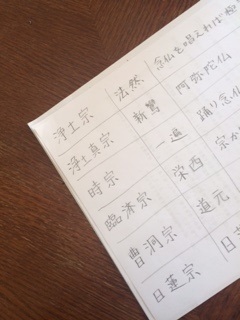 浄土宗 法然 念仏を唱えれば極
浄土真宗 新鸞 阿弥陀仏
時宗 一遍 踊り念仏
臨済宗 栄西
曹洞宗 道元
日蓮宗 日